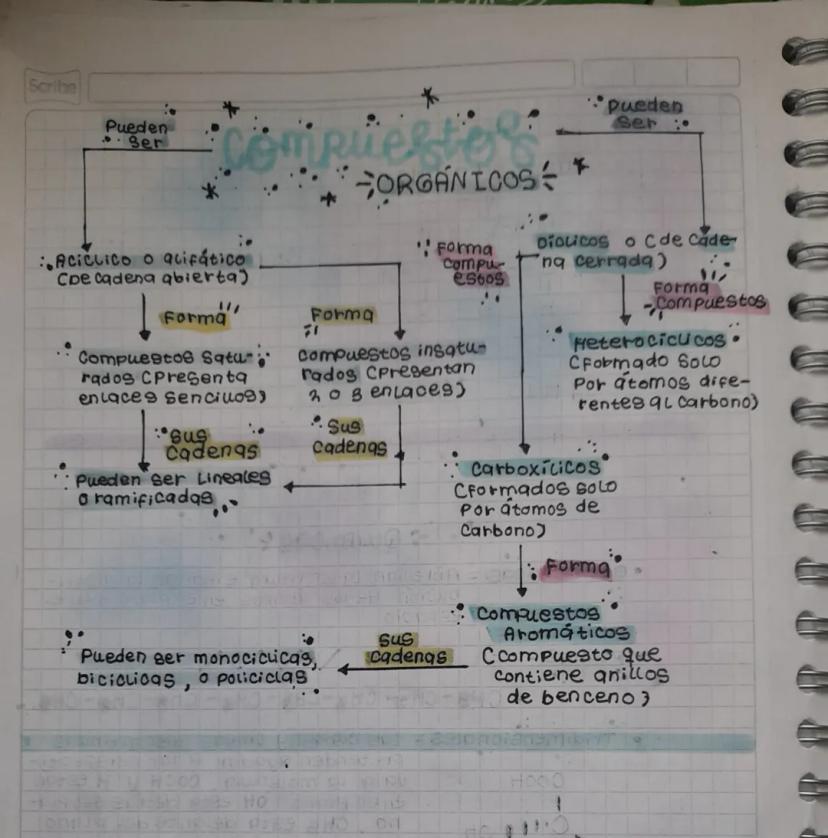 Scribe
Pueden
ser
COMPUESTOS
ORGÁNICOS
Pueden
ser
Acíclico o alifático
(De cadena abierta)
Forma
Compuestos Satu-
rados (Presenta
enlaces sencillos)
Sus
Cadenas
Pueden ser Lineales
o ramificadas
Forma
Compuestos insatu-
rados (Presentan
2 o 3 enlaces)
Sus
Cadenas
Forma
Compu-
estos
o (de Cade-
na cerrada)
Forma
Compuestos
Heterocíclicos
(Formado Solo
Por átomos dife-
rentes al Carbono)
Carboxílicos
(Formados solo
Por átomos de
Carbono)
Forma
Compuestos
Aromáticos
(Compuesto que
contiene anillos
de benceno)
Sus
Cadenas
Pueden ser monocíclicas,
bicíclicas, o policiclas